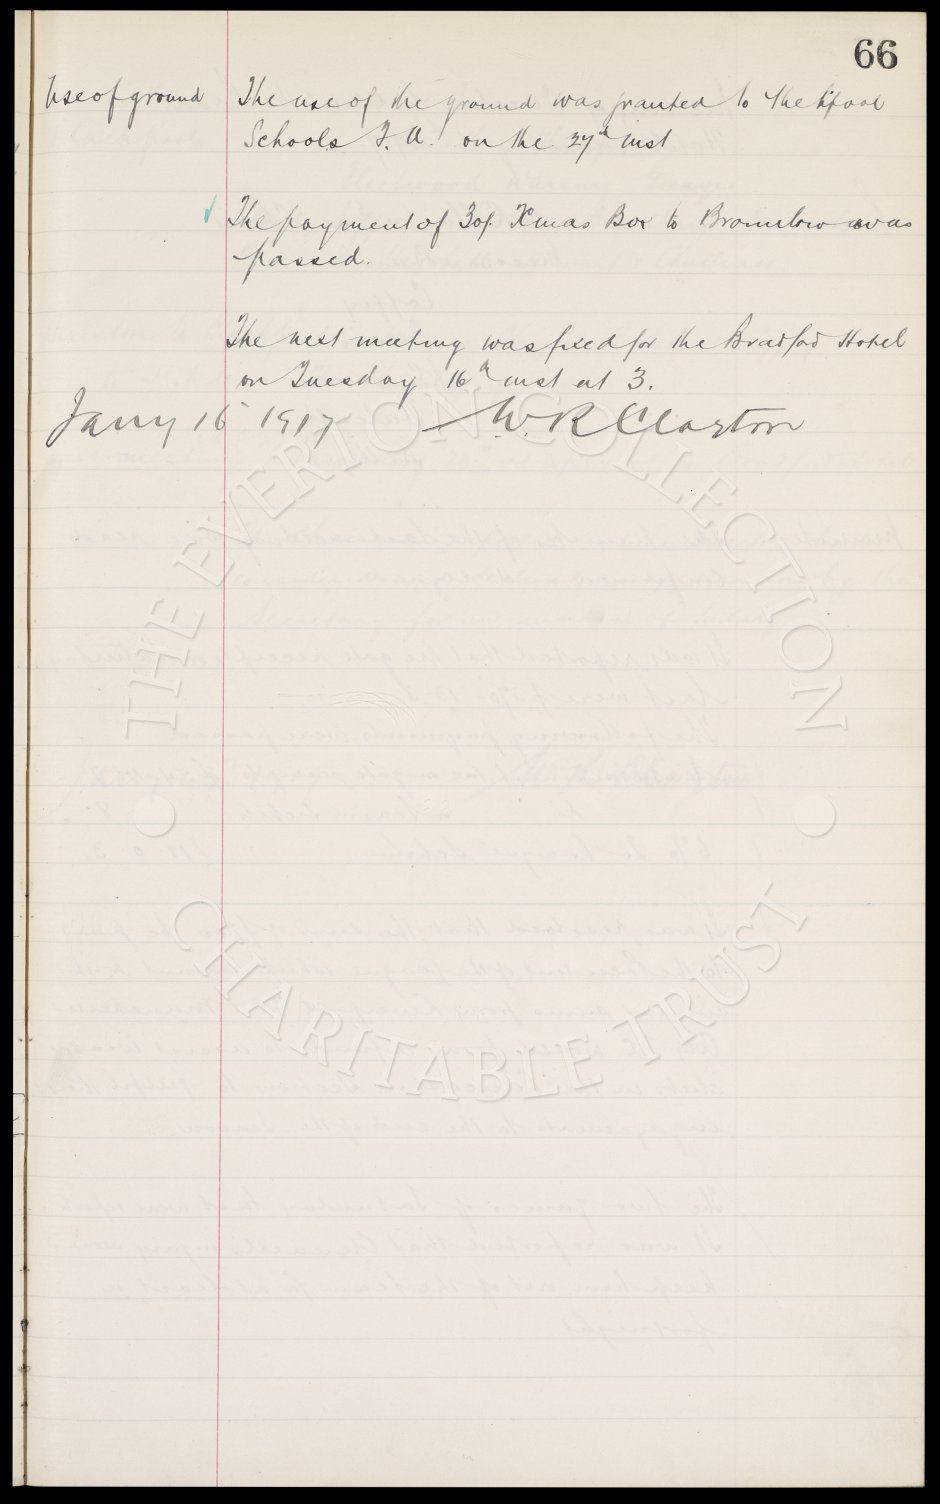 66
Use of ground
The use of the ground was granted to the L'pool
Schools F. A. on the 27th inst
The payment of 30/. Xmas Box to Bromilow was
passed.
The next meeting was fixed for the Bradford Hotel
on Tuesday 16th inst at 3.
Jany 16 1917 W. R Clayton
THE EVERTON COLLECTION
CHARITABLE TRUST